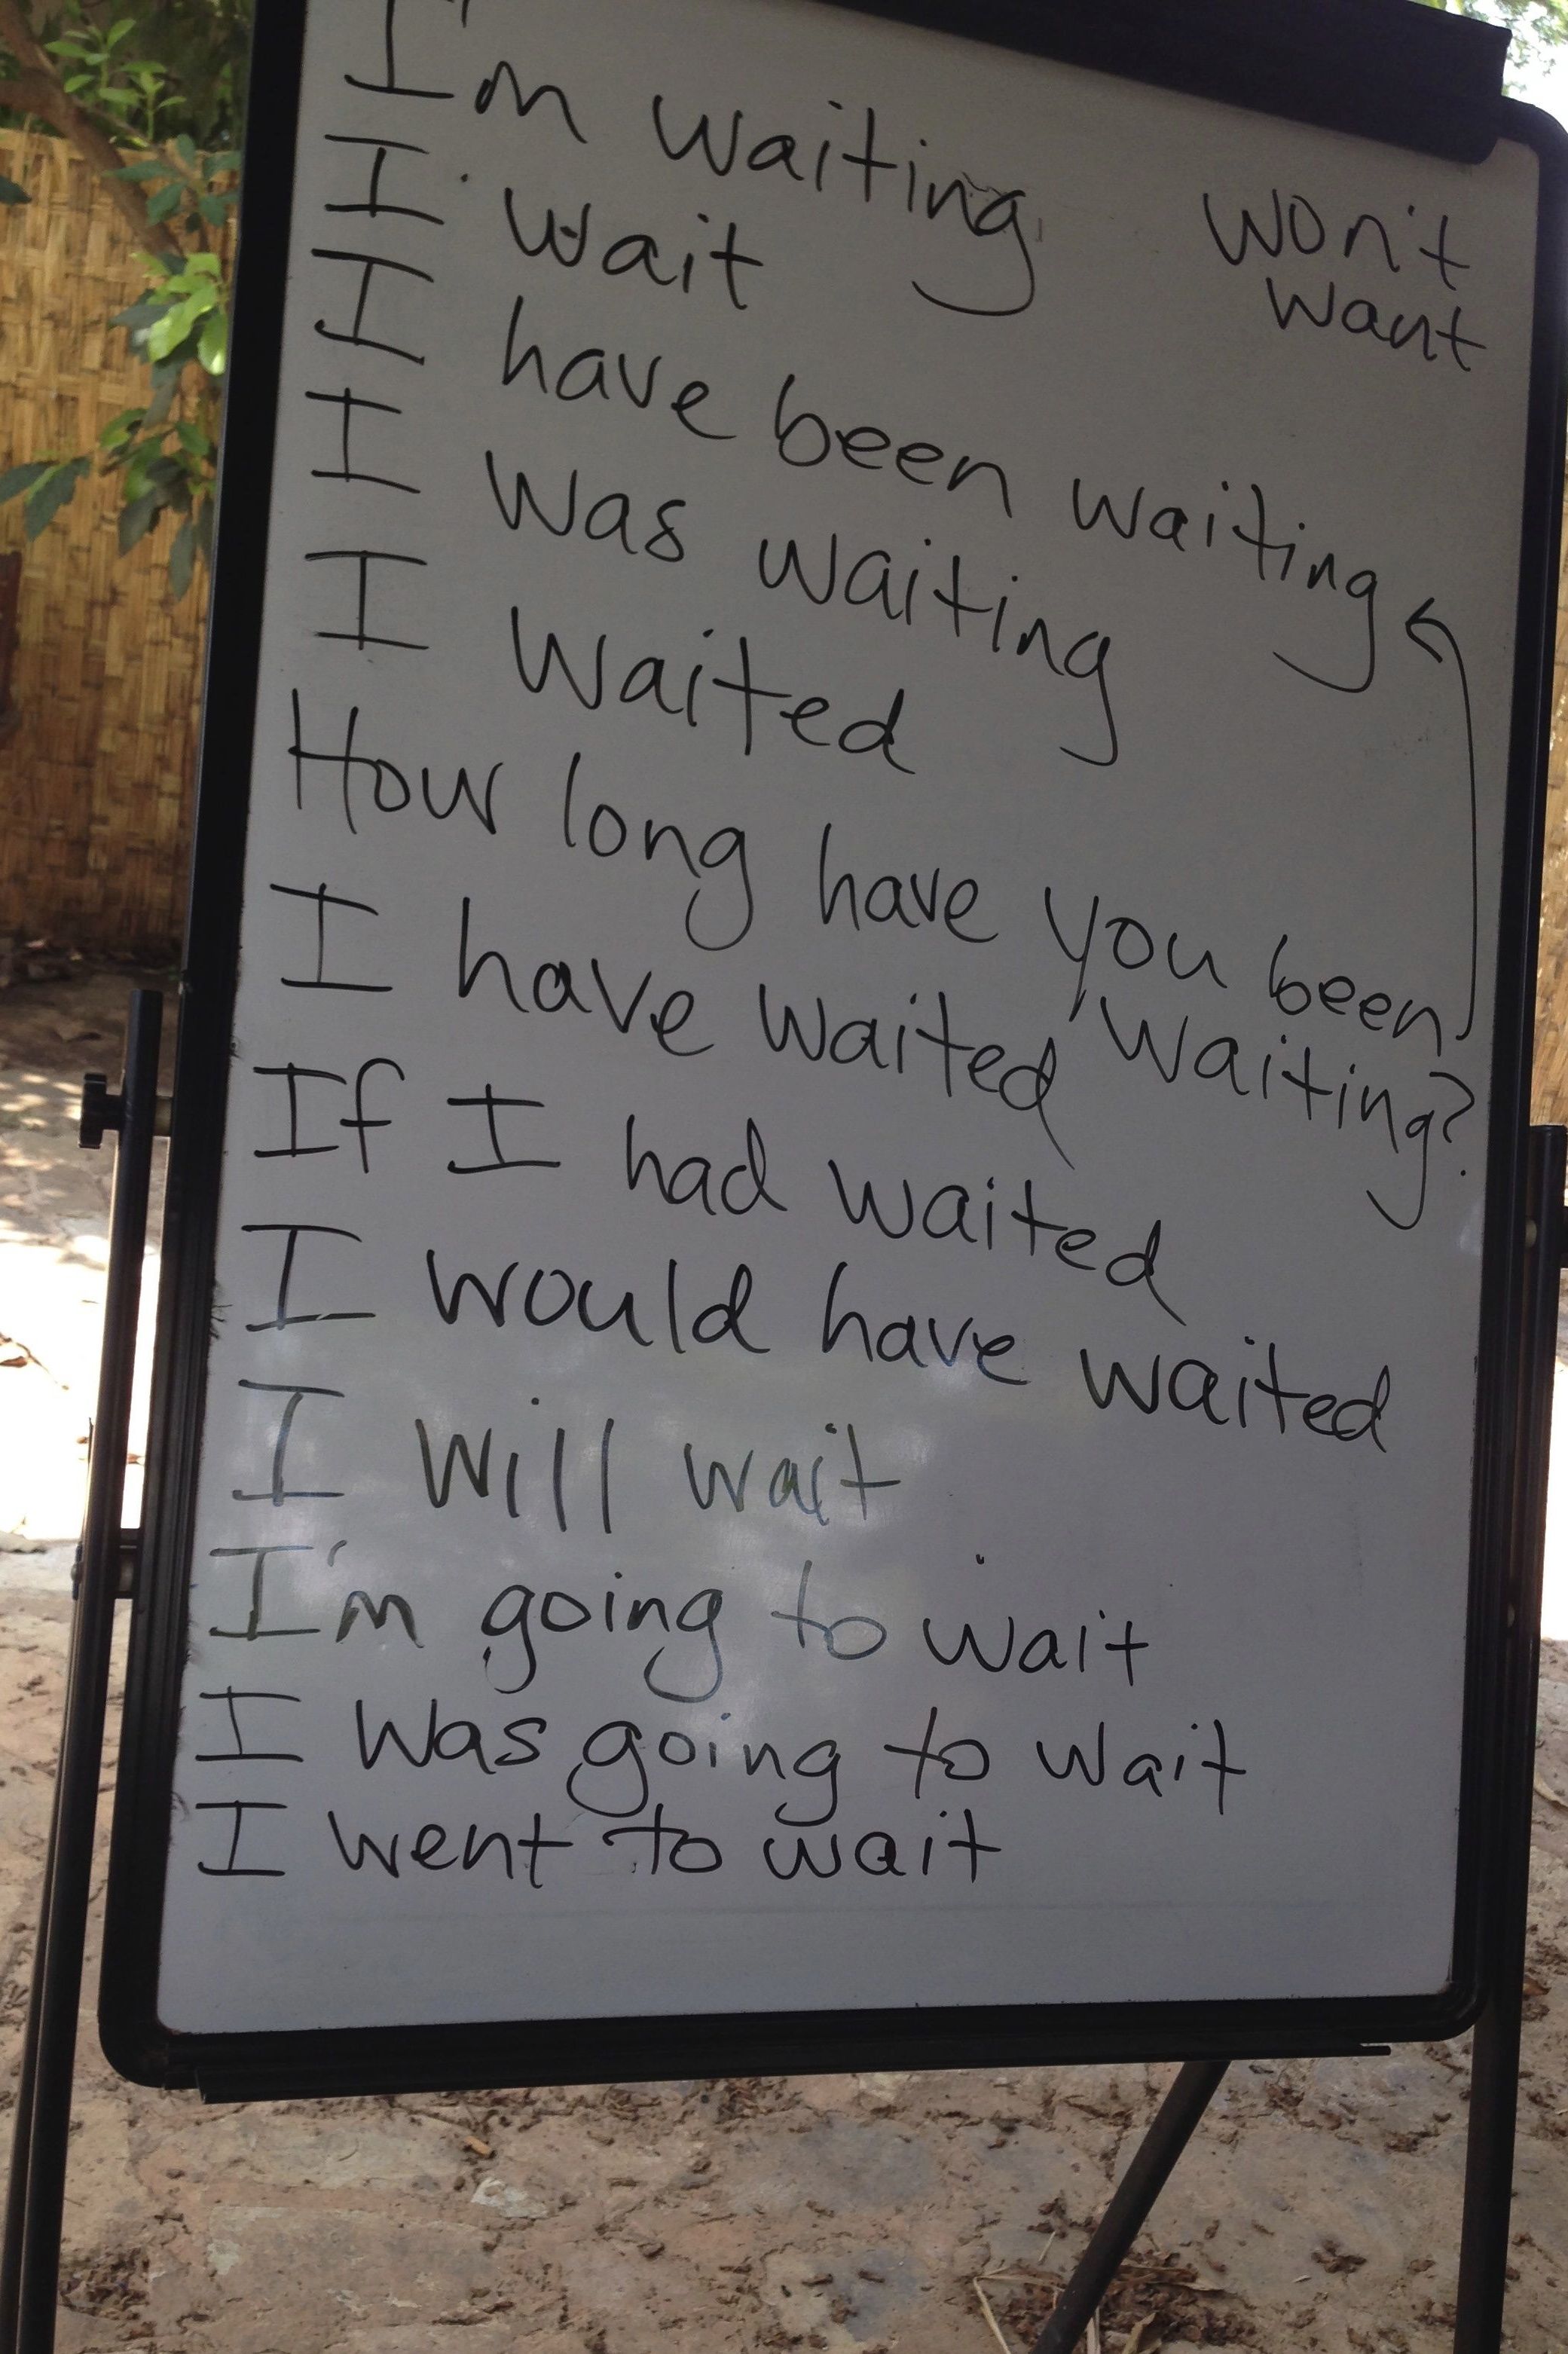 I'm waiting
won't
want
I wait
I have been waiting
I was waiting
I waited
How long have you been
waiting?
I have waited
If I had waited
I would have waited
I will wait
I'm going to wait
I was going to wait
I went to wait